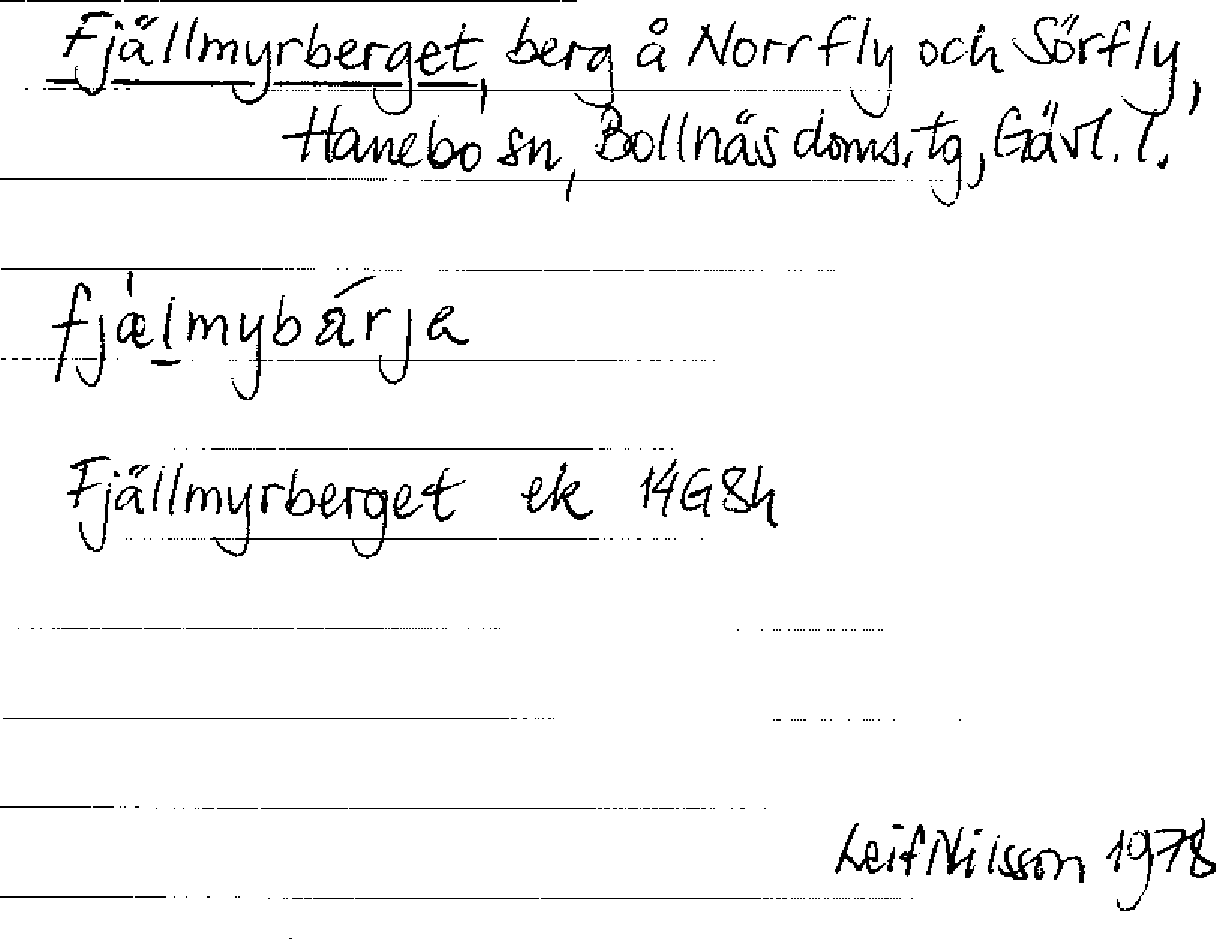 Fjällmyrberget, berg å Norrfly och Sörfly,
Hanebo sn, Bollnäs doms.tg, Gävl. l.
fjælmybárja
Fjällmyrberget ek 14G8h
Leif Nilsson 1978